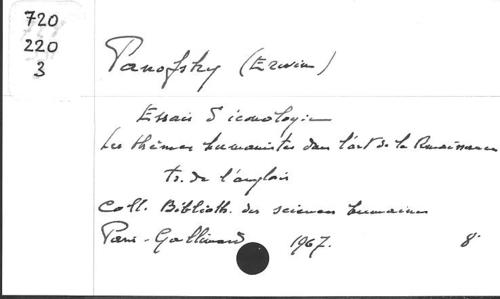 720
220
3
Panofsky (Erwin)
Essais d'iconologie
Les thèmes humanistes dans l'art de la Renaissance
tr. de l'anglais
Coll. Biblioth. des sciences humaines
Paris - Gallimard 1967. 8°